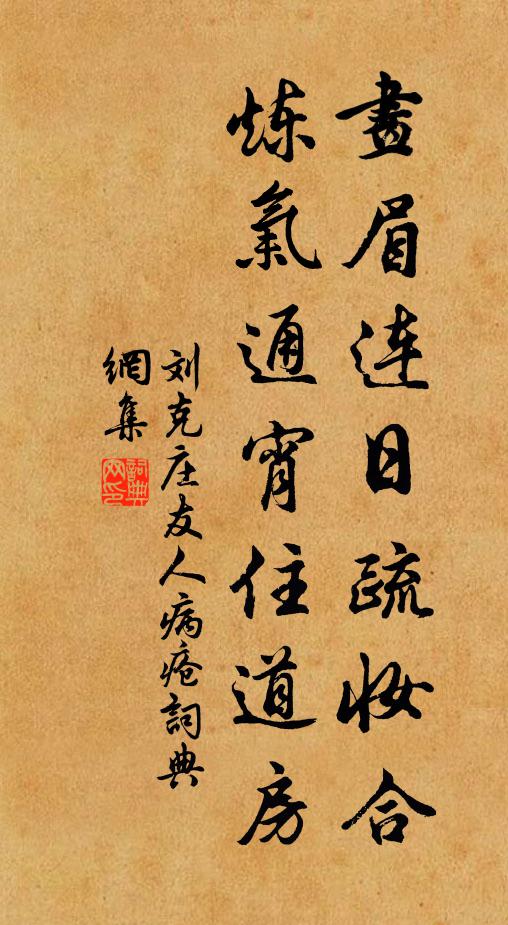 畫眉连日疏妆合
炼氣通宵住道房
刘克庄友人病疮詞典
網集
詞典网印